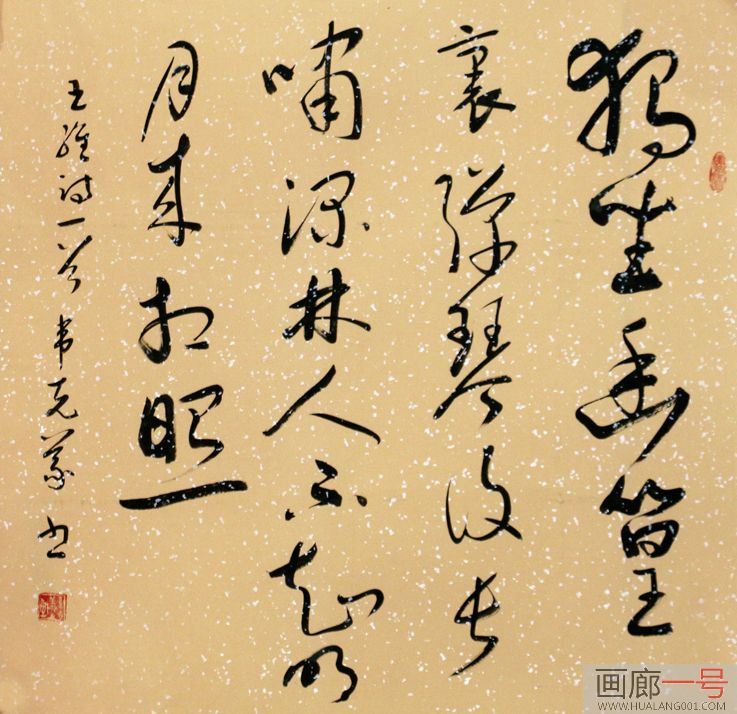 獨坐幽篁
裏彈琴復長
嘯深林人不知明
月来相照
王維詩一首 韦克義书
画廊一号
WWW.HUALANG001.COM